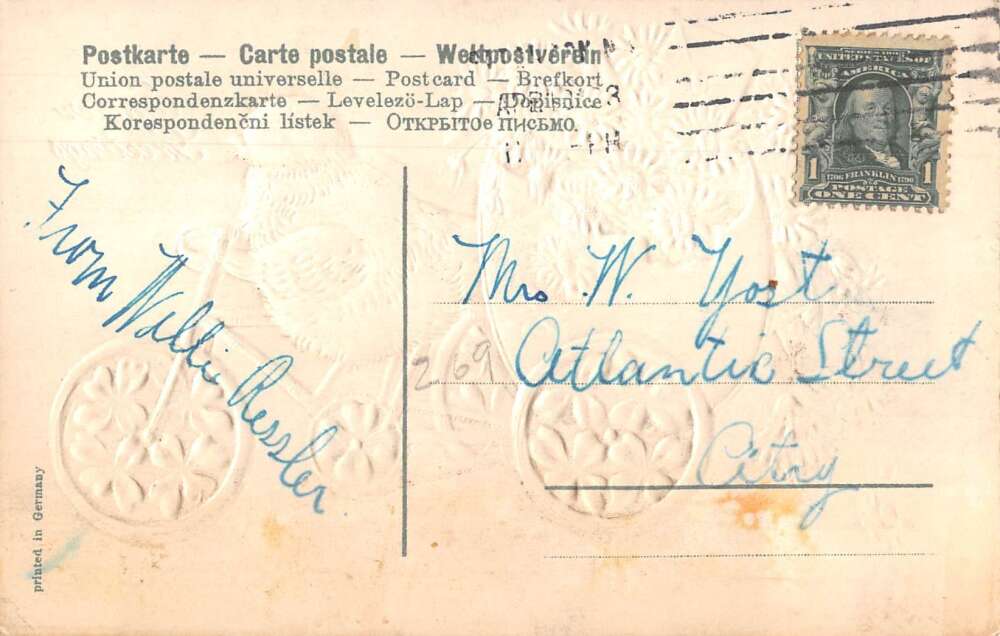 Postkarte — Carte postale — Weltpostverein
Union postale universelle — Postcard — Brefkort
Correspondenzkarte — Levelezö-Lap — Dopisnice
Korespondenčni lístek — ОТКРЫТОе ПИСЬМО.
SERIES 1902
UNITED STATES OF
AMERICA
1706 FRANKLIN 1790
1 POSTAGE 1
ONE CENT
From Willie Ressler.
Mrs W. Yost
269 Atlantic Street
City
printed in Germany